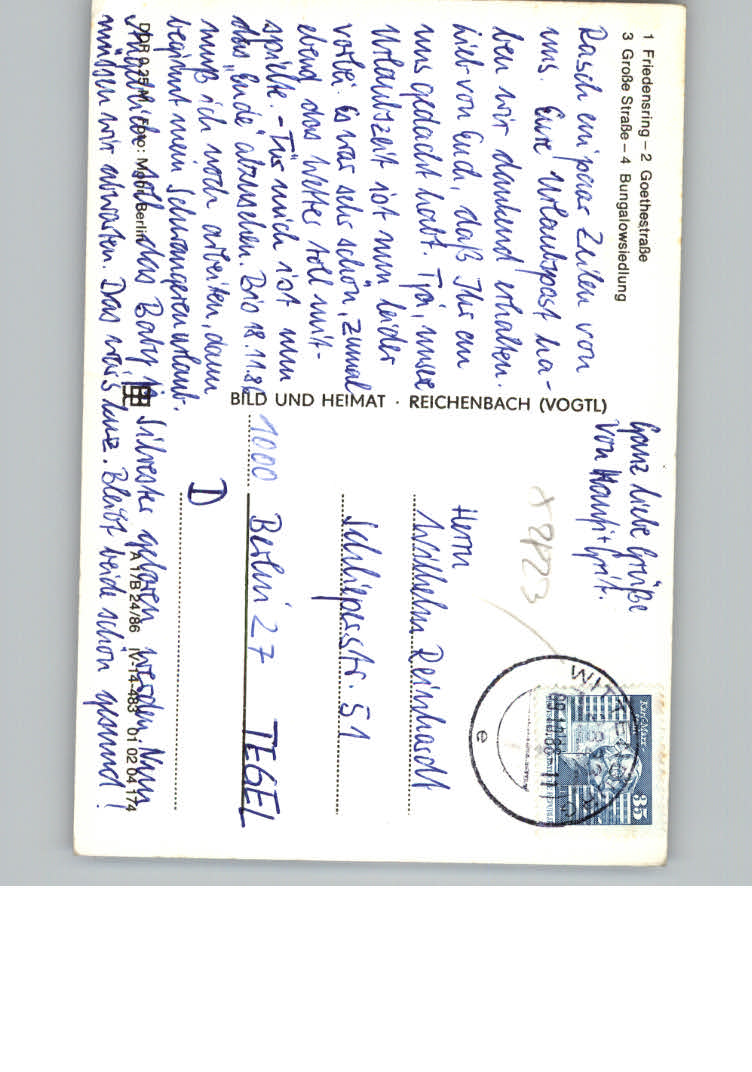 1 Friedensring – 2 Goethestraße
3 Große Straße – 4 Bungalowsiedlung
Rasch ein paar Zeilen von
uns. Eure Urlaubspost ha-
ben wir dankend erhalten.
Lieb von Euch, daß Ihr an
uns gedacht habt. Tja, unsere
Urlaubszeit ist nun leider
vorbei. Es war sehr schön, zumal
ebend das Wetter toll mit-
spielte. – Für mich ist nun
das "Ende" abzusehen. Bis 18.11.86
muß ich noch arbeiten, dann
beginnt mein Schwangerenurlaub.
soll das Baby Silvester geboren werden. Nun
müssen wir abwarten. Das wär's kurz. Bleibt beide schön gesund!
Ganz liebe Grüße
von
DDR 0,25 M Foto: Mobil, Berlin
BILD UND HEIMAT · REICHENBACH (VOGTL)
A 1/B 24/86 IV-14-483 01 02 04 174
Herrn
Wilhelm Reinhardt
Schlieperstr. 51
1000 Berlin 27 TEGEL
D
35
e